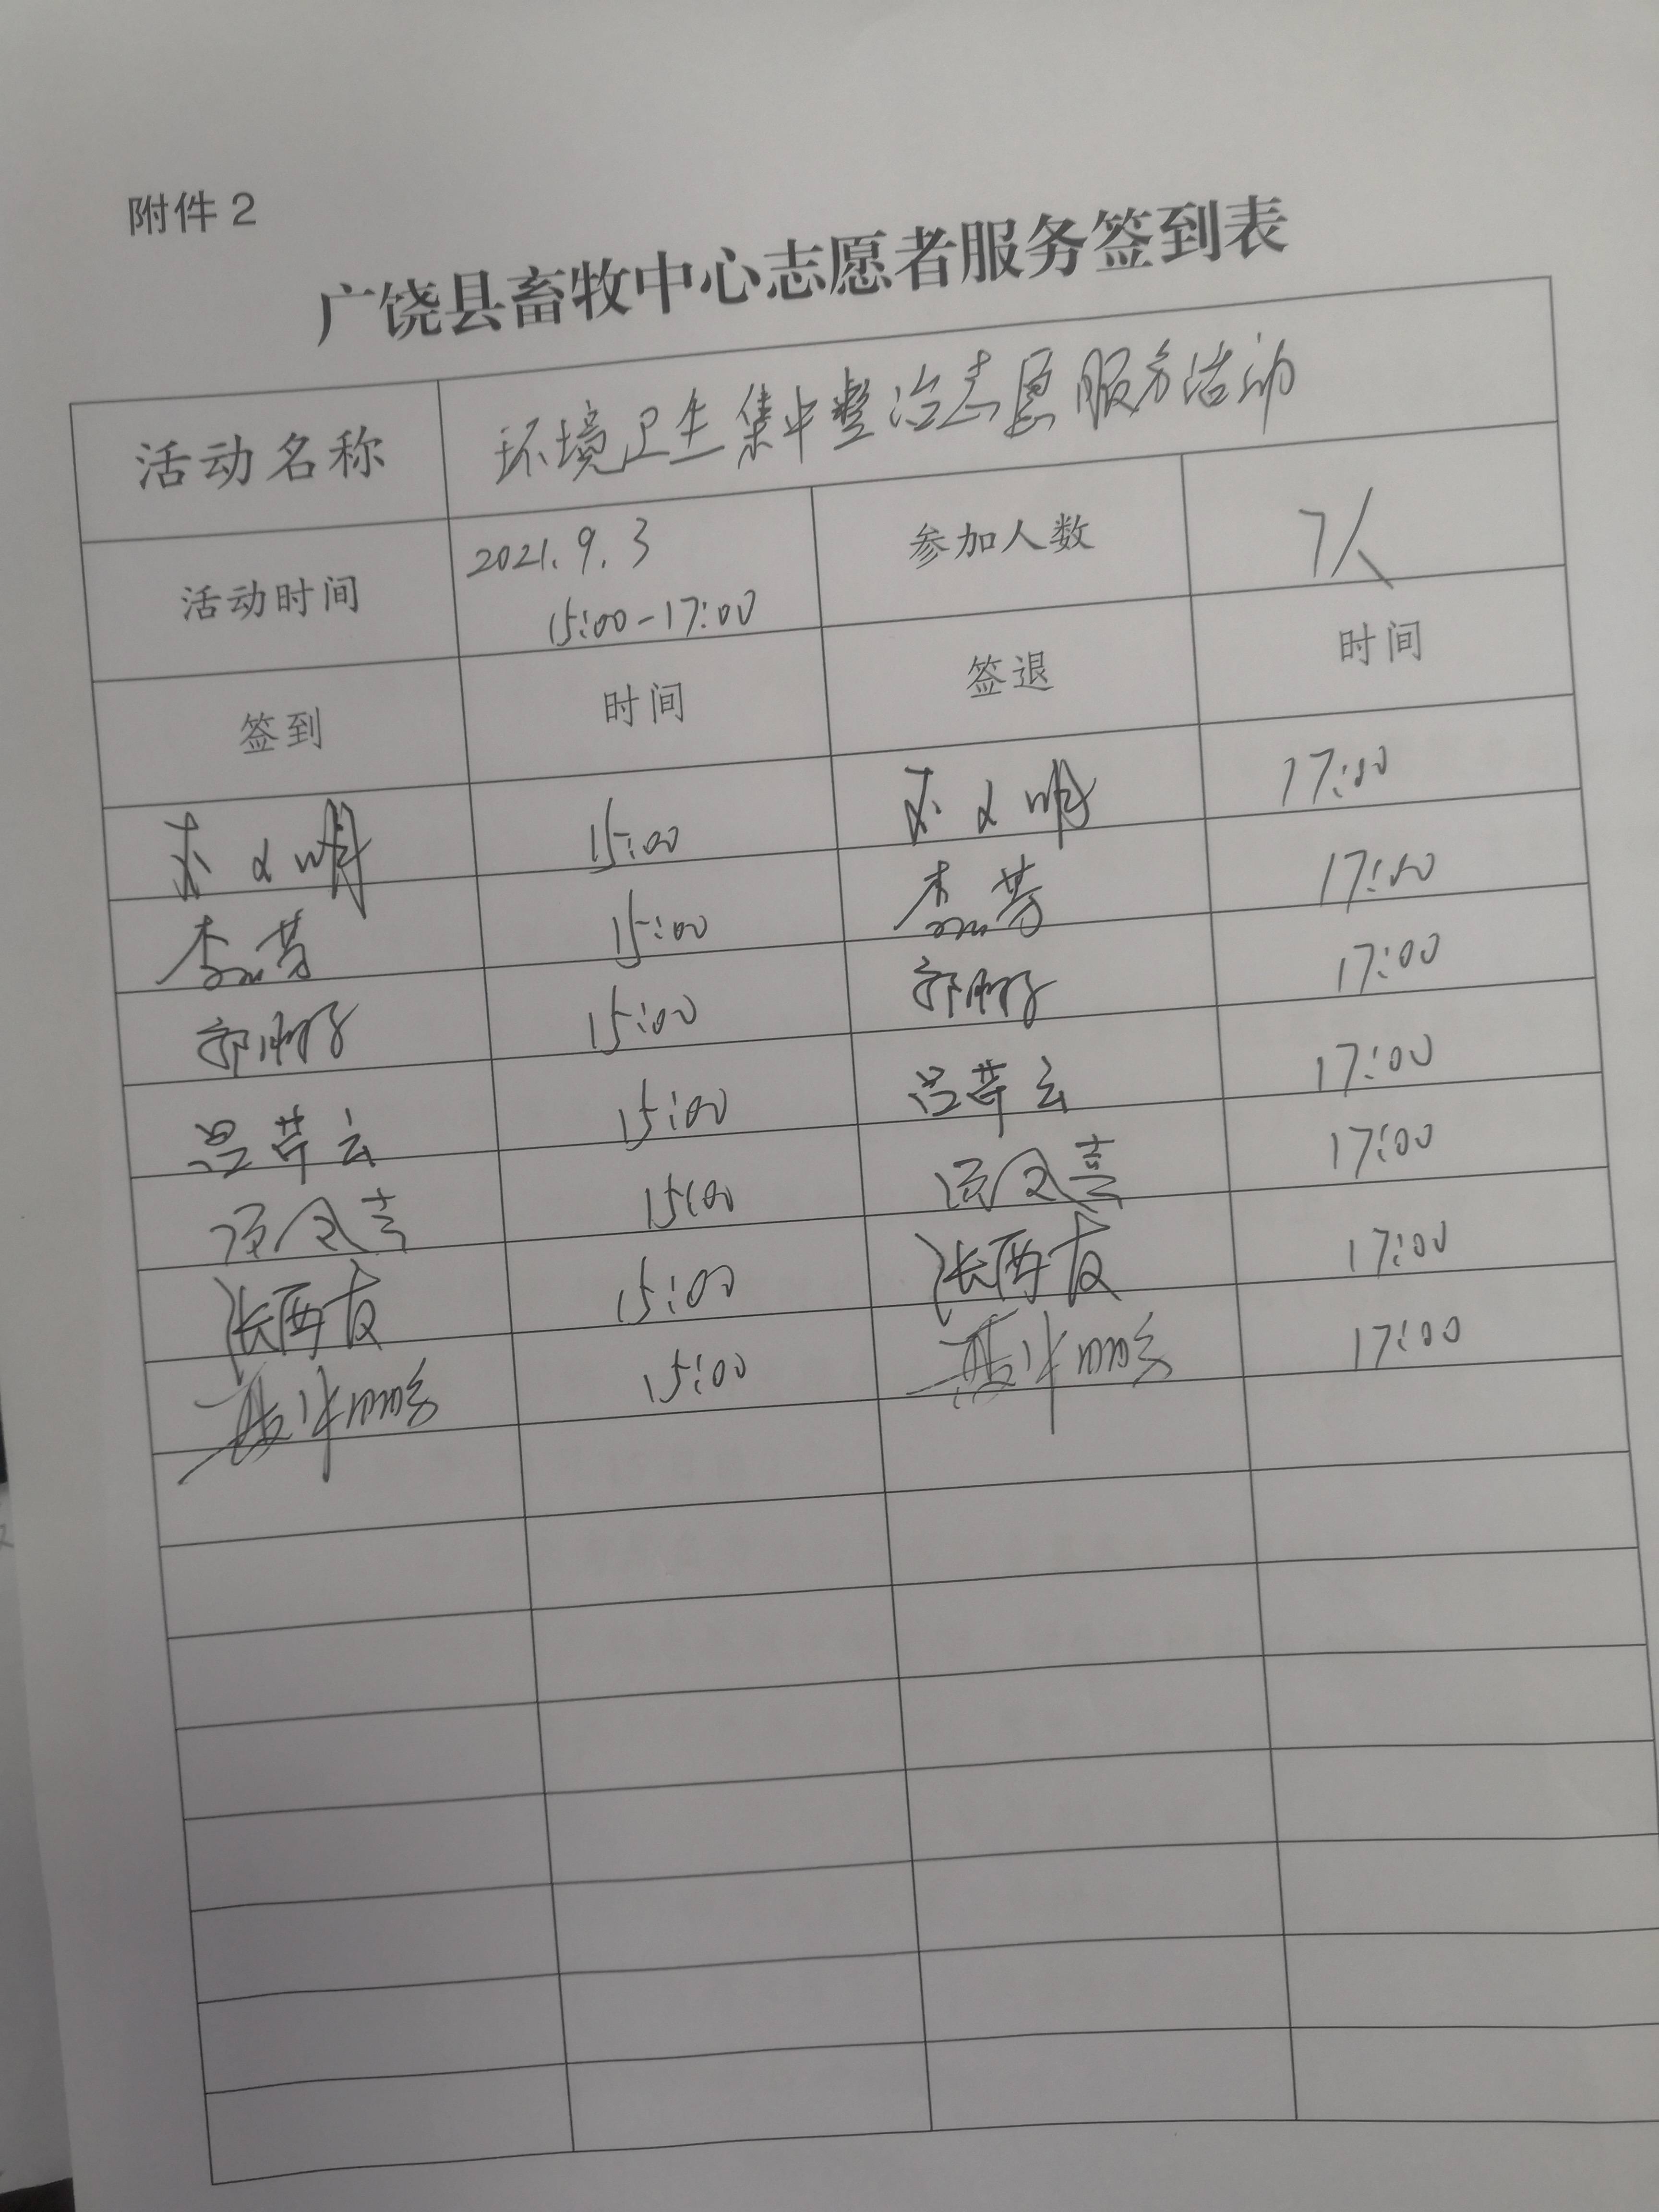 附件2
广饶县畜牧中心志愿者服务签到表
活动名称 环境卫生集中整治志愿服务活动
活动时间 2021.9.3 15:00-17:00 参加人数 7人
签到 时间 签退 时间
15:00 17:00
15:00 17:00
15:00 17:00
吕芹云 15:00 吕芹云 17:00
15:00 17:00
张西友 15:00 张西友 17:00
15:00 17:00